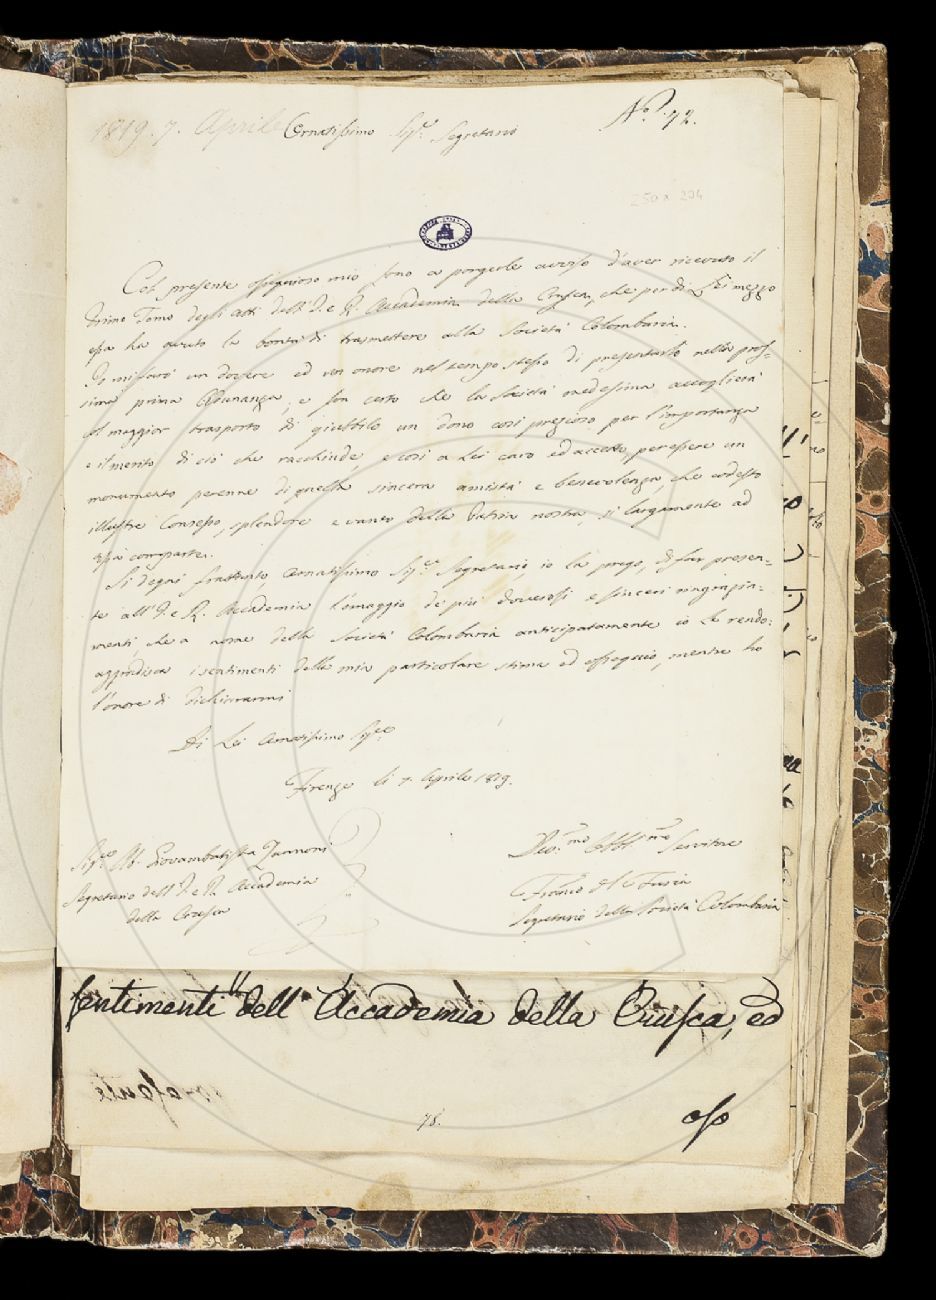 1819. 7. Aprile
Ornatissimo Sig.re Segretario
N.o 72.
250 x 204
Col presente ossequioso mio sono a porgerle avviso d'aver ricevuto il
Primo Tomo degli Atti dell'I. e R. Accademia della Crusca, che per di Lei mezzo
essa ha avuto la bontà di trasmettere alla Società Colombaria.
Io mi farò un dovere ed un onore nel tempo stesso di presentarlo nella pros-
sima prima Adunanza, e son certo che la Società medesima accoglierà
col maggior trasporto di giubbilo un dono così prezioso per l'importanza
e il merito di ciò che racchiude, e così a Lei caro ed accetto, per essere un
monumento perenne di quella sincera amistà e benevolenza, che codesto
illustre Consesso, splendore e vanto della Patria nostra, sì largamente ad
essa comparte.
Si degni frattanto, Ornatissimo Sig.re Segretario, io la prego, di far presen-
te all'I. e R. Accademia l'omaggio de' più doverosi e sinceri ringrazia-
menti, che a nome della Società Colombaria anticipatamente io Le rendo:
aggradisca i sentimenti della mia particolare stima ed ossequio, mentre ho
l'onore di dichiararmi
Di Lei Ornatissimo Sig.re
Firenze li 7. Aprile 1819.
Sig.re Ab. Giovambatista Zannoni
Segretario dell'I. e R. Accademia
della Crusca
Dev.mo Obbl.mo Servitore
Del Furia
Segretario della Società Colombaria
sentimenti dell'Accademia della Crusca, ed
78.